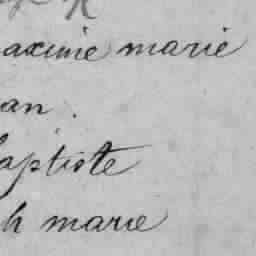 axime marie
an.
aptiste
h marie